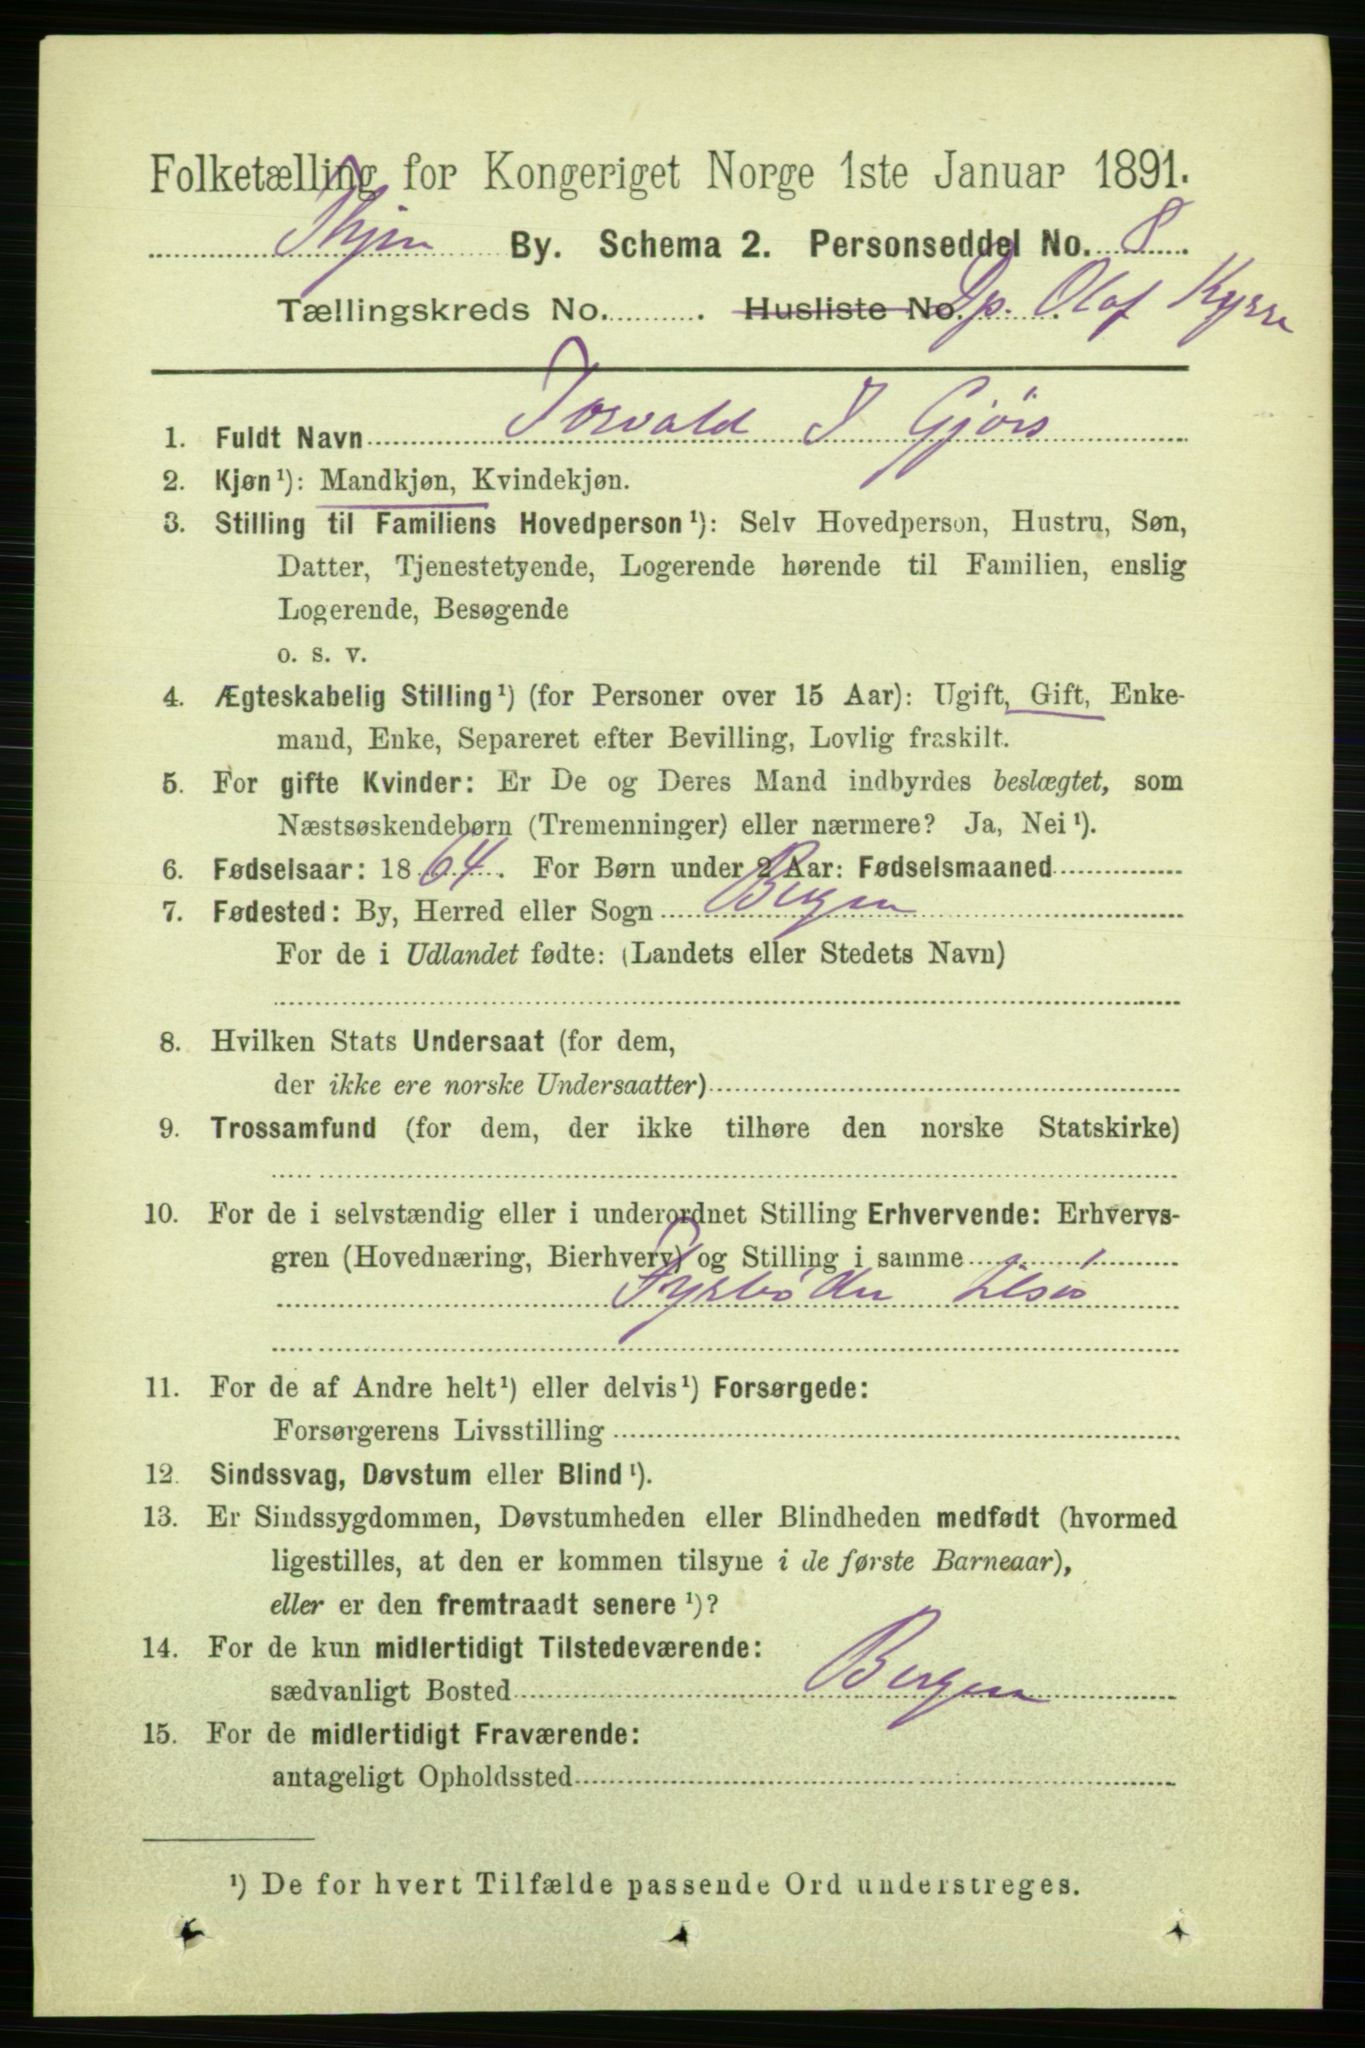 Folketælling for Kongeriget Norge 1ste Januar 1891.
By. Schema 2. Personseddel No. 8
Tællingskreds No. ......... Husliste No. Dp. Olaf Kyrre
1. Fuldt Navn Torvald J Gjörs
2. Kjøn¹): Mandkjøn, Kvindekjøn.
3. Stilling til Familiens Hovedperson¹): Selv Hovedperson, Hustru, Søn,
Datter, Tjenestetyende, Logerende hørende til Familien, enslig
Logerende, Besøgende
o. s. v.
4. Ægteskabelig Stilling¹) (for Personer over 15 Aar): Ugift, Gift, Enke-
mand, Enke, Separeret efter Bevilling, Lovlig fraskilt.
5. For gifte Kvinder: Er De og Deres Mand indbyrdes beslægtet, som
Næstsøskendebørn (Tremenninger) eller nærmere? Ja, Nei¹).
6. Fødselsaar: 1864. For Børn under 2 Aar: Fødselsmaaned
7. Fødested: By, Herred eller Sogn Bergen
For de i Udlandet fødte: (Landets eller Stedets Navn)
8. Hvilken Stats Undersaat (for dem,
der ikke ere norske Undersaatter)
9. Trossamfund (for dem, der ikke tilhøre den norske Statskirke)
10. For de i selvstændig eller i underordnet Stilling Erhvervende: Erhvervs-
gren (Hovednæring, Bierhverv) og Stilling i samme
Fyrböder
11. For de af Andre helt¹) eller delvis¹) Forsørgede:
Forsørgerens Livsstilling
12. Sindssvag, Døvstum eller Blind¹).
13. Er Sindssygdommen, Døvstumheden eller Blindheden medfødt (hvormed
ligestilles, at den er kommen tilsyne i de første Barneaar),
eller er den fremtraadt senere¹)?
14. For de kun midlertidigt Tilstedeværende:
sædvanligt Bosted Bergen
15. For de midlertidigt Fraværende:
antageligt Opholdssted
¹) De for hvert Tilfælde passende Ord understreges.